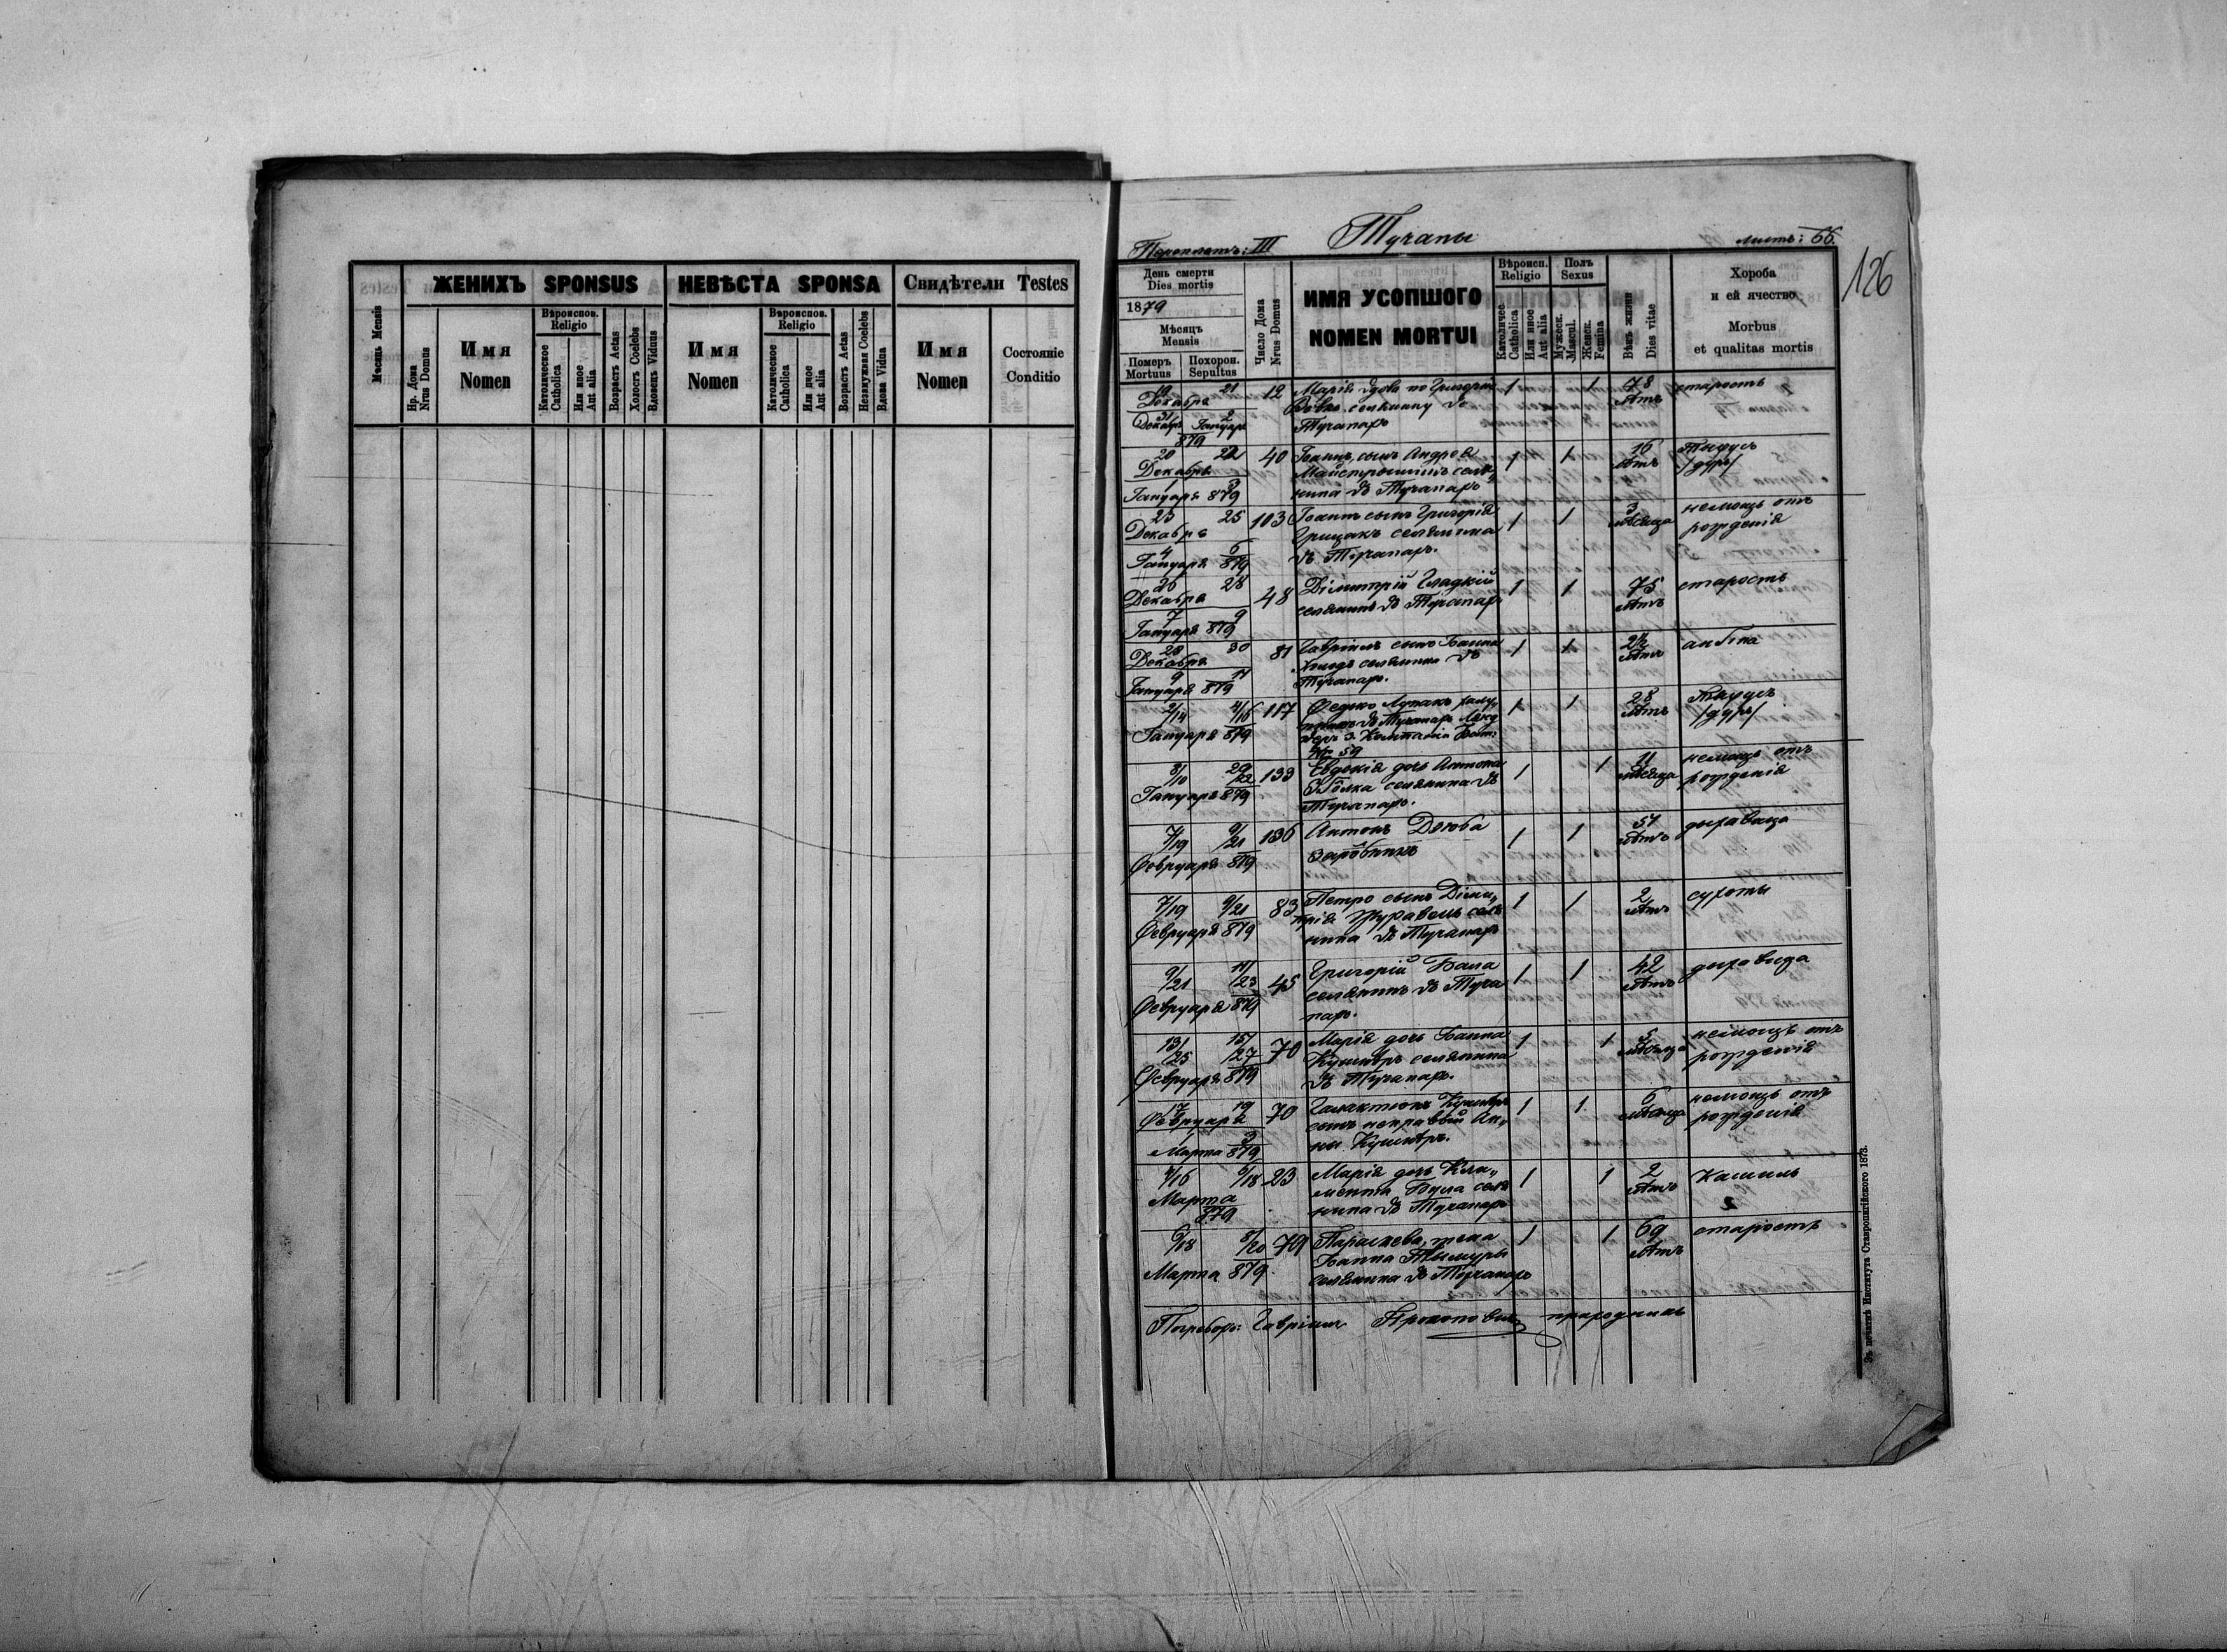 Мѣсяць Mensis
ЖЕНИХЪ SPONSUS
НЕВѢСТА SPONSA
Свидѣтели Testes
Нр. Дома
Nrus Domus
Имя
Nomen
Вѣроиспов.
Religio
Католическое
Catholica
Или иное
Aut alia
Возрастъ Aetas
Холостъ Coelebs
Вдовецъ Viduus
Имя
Nomen
Вѣроиспов.
Religio
Католическое
Catholica
Или иное
Aut alia
Возрастъ Aetas
Незамужная Coelebs
Вдова Vidua
Имя
Nomen
Состояніе
Conditio
Тучапы
III
листъ: 66.
126
День смерти
Dies mortis
1879
Мѣсяцъ
Mensis
Померъ
Mortuus
Похорон.
Sepultus
Число Дома
Nrus Domus
ИМЯ УСОПШОГО
NOMEN MORTUI
Вѣроисп.
Religio
Католичес.
Catholica
Или иное
Aut alia
Полъ
Sexus
Мужеск.
Mascul.
Женск.
Femina
Вѣкъ жизни
Dies vitae
Хороба
и ей ячество
Morbus
et qualitas mortis
19 21 12 Марія вдова по Григорію 1 1 78 старость
Декабра селянину въ лѣтъ
31 2 Тучапахъ
Декабр Януара
879
20 22 40 Іоаннъ сынъ Андрея 1 1 16 Тифусъ
Декабра селя лѣтъ /дуръ/
1 3 нина въ Тучапахъ
Януара 879
23 25 103 Іоаннъ сынъ Григорія 1 1 3 немощь отъ
Декабра Грицакъ селянина мѣсяца рожденія
4 6 въ Тучапахъ.
Януара 879
26 28 48 Димитрій Гладкій 1 1 75 старость
Декабра селянинъ въ Тучапах лѣтъ
7 9
Януара 879
28 30 81 Гавріилъ сынъ Іоанна 1 1 2½
Декабра селянина въ лѣтъ
9 11 Тучапах.
Януара 879
2/14 4/16 117 Федько 1 1 28 Тифусъ
Януара 879 въ Тучапах лѣтъ /дуръ/
59
8/10 133 Евдокія дочь Антона 1 1 11 немощь отъ
Януара 879 селянина въ мѣсяца рожденія
Тучапах.
7/19 9/21 136 Антонъ Дзюба 1 1 51 дыхавица
Февруара 879 заробникъ лѣтъ
7/19 9/21 83 Петро сынъ Дими„ 1 1 2 сухоты
Февруара 879 трія Журавель селя лѣтъ
нина въ Тучапах
9/21 11/23 45 Григорій Бала 1 1 42 дыхавица
Февруара 879 селянинъ въ Туча лѣтъ
пах.
13/25 15/27 70 Марія дочь Іоанна 1 1 5 немощь отъ
Февруара 879 Кушнѣръ селянина мѣсяца рожденія
въ Тучапах.
17 19 70 Галактіонъ Кушнѣръ 1 1 6 немощь отъ
Февруара сынъ неправый Ан„ мѣсяца рожденія
1 3 ны Кушнѣръ.
Марта 879
4/16 6/18 23 Марія дочь Кли„ 1 1 2 Кашиль
Марта мента селя лѣтъ
879 нина въ Тучапах
6/18 8/20 79 Параскева, жена 1 1 69 старость
Марта 879 Іоанна лѣтъ
селянина въ Тучапах
Погребохъ: Гавріилъ Прокоповичъ
Зъ печатнѣ Института Ставропигійского 1878.